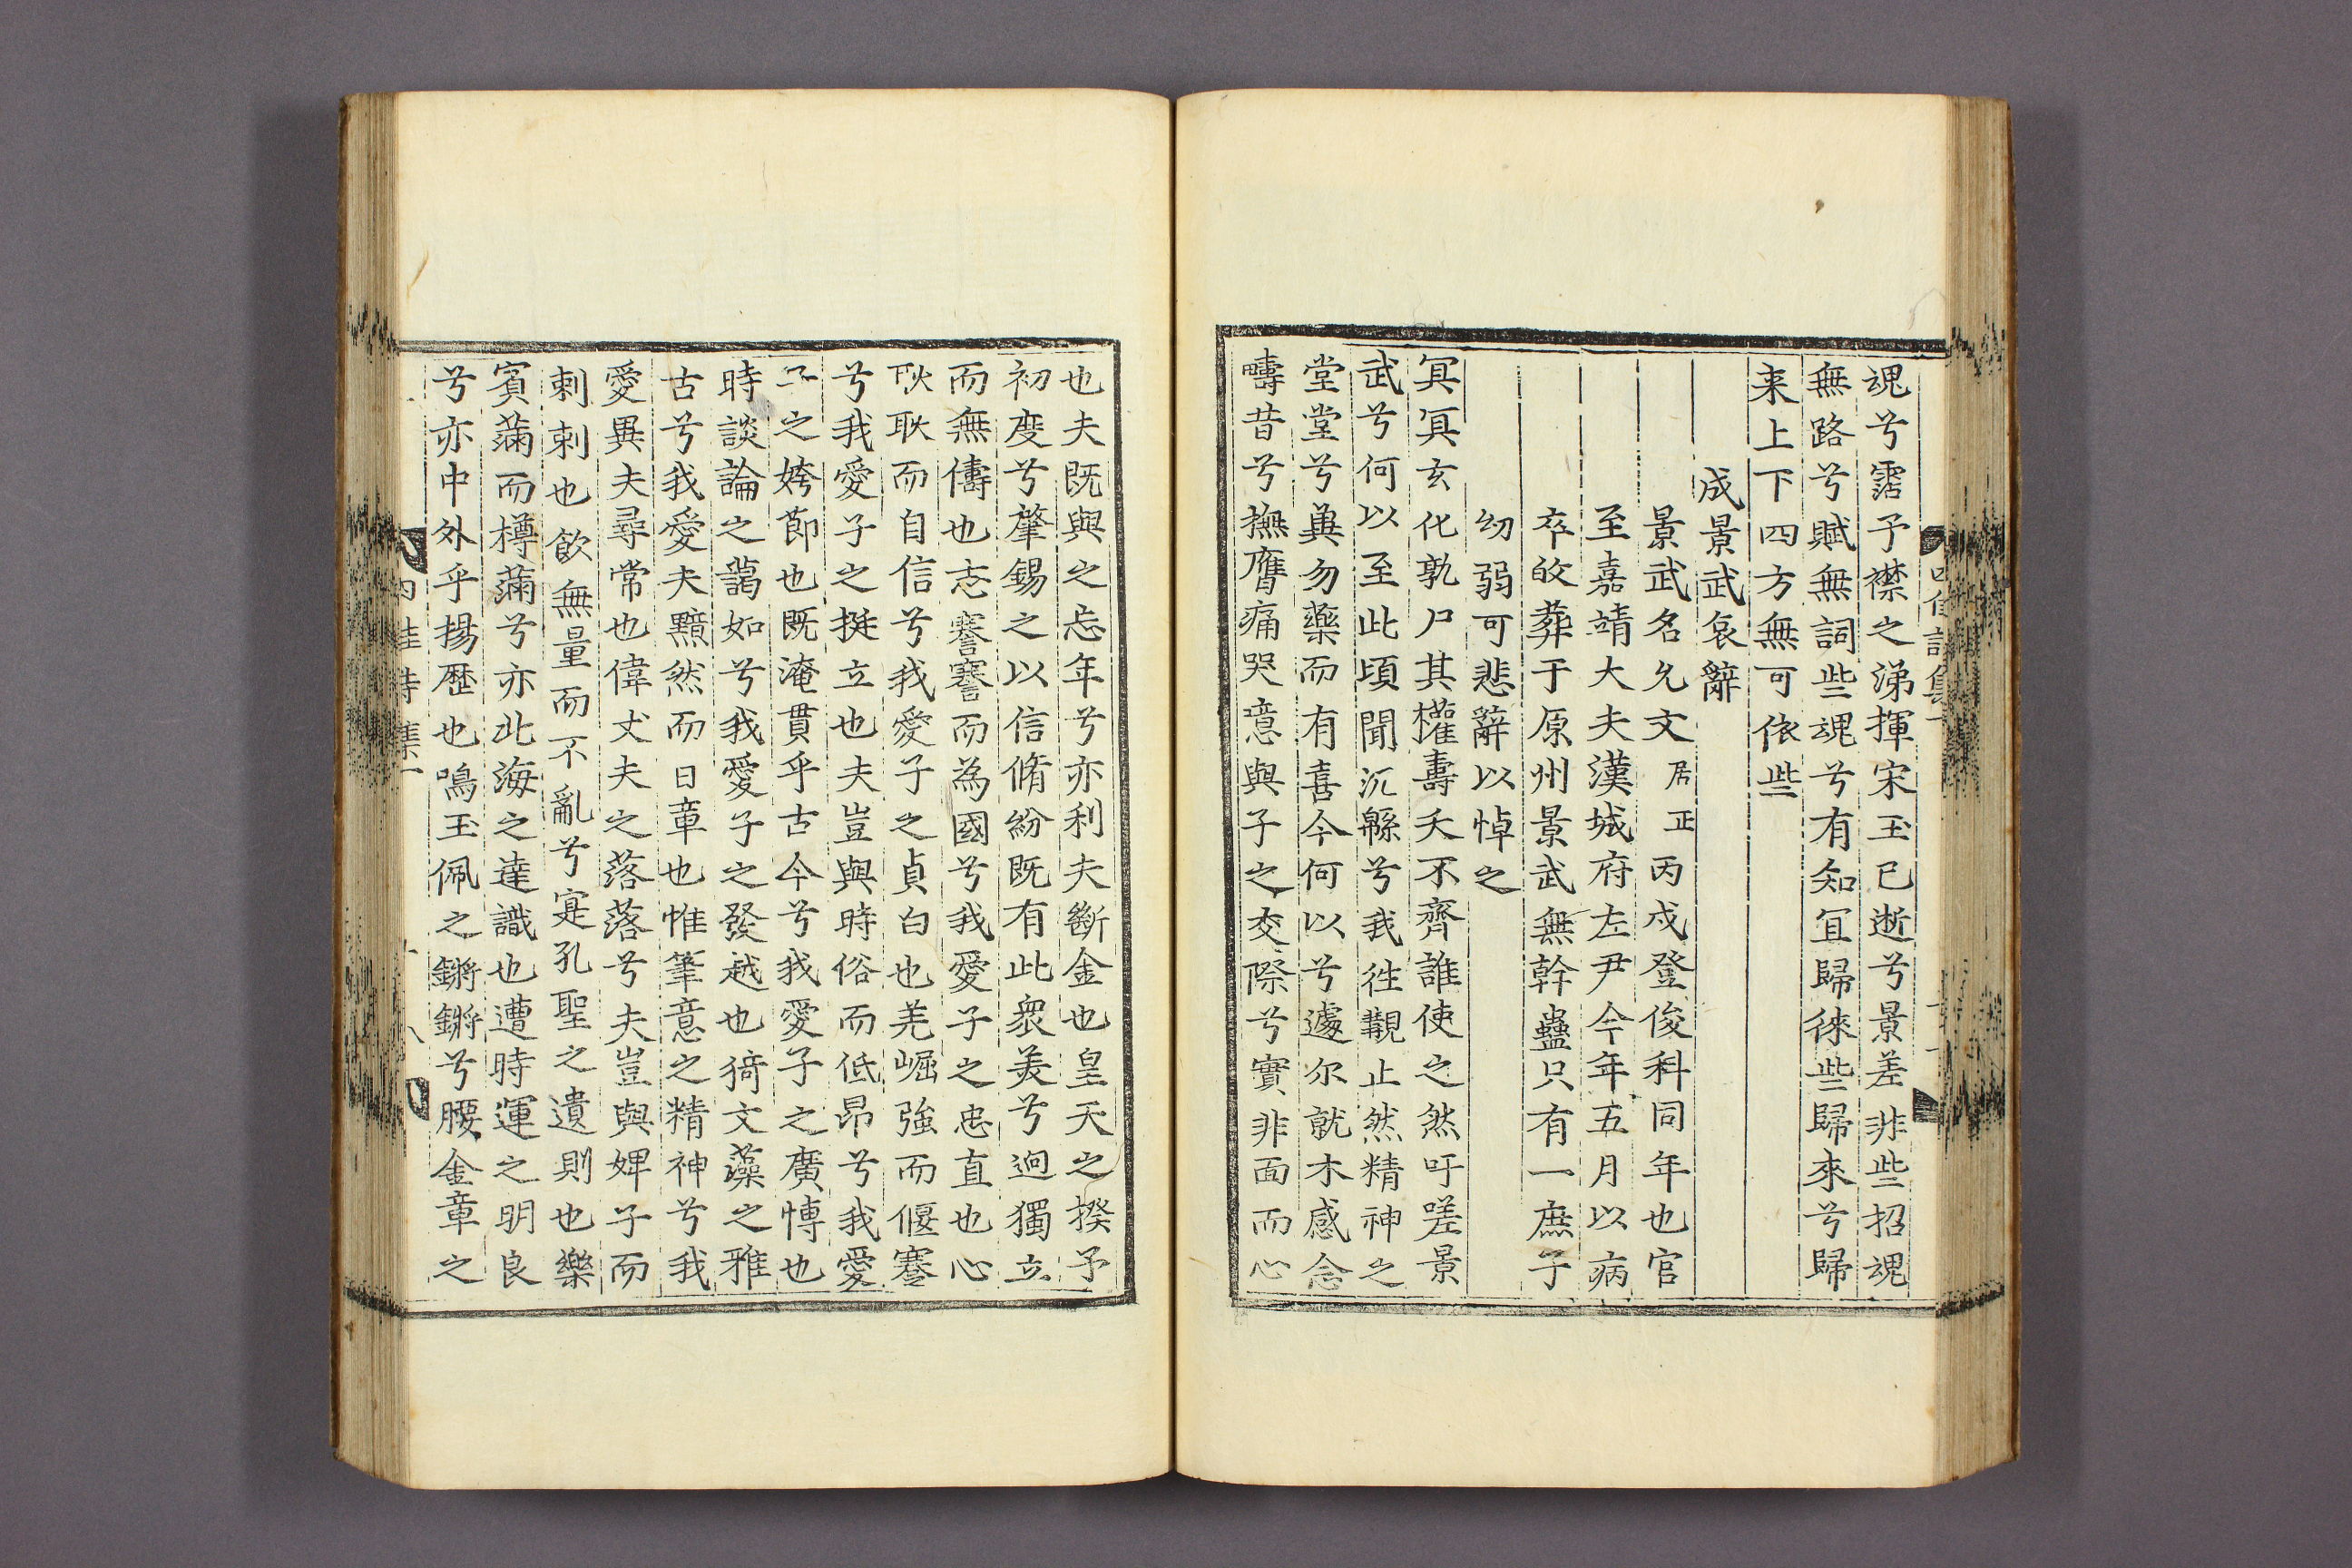 魂兮霑予襟之涕揮宋玉已逝兮景差非些招魂
無路兮賦無詞些魂兮有知冝歸徠些歸來兮歸
来上下四方無可依些
成景武哀辭
景武名允文居正丙戌登俊科同年也官
至嘉靖大夫漢城府左尹今年五月以病
卒故葬于原州景武無幹蠱只有一庶子
幼弱可悲辭以悼之
冥冥玄化孰尸其權壽夭不齊誰使之然吁嗟景
武兮何以至此頃聞沉緜兮我徃覯止然精神之
堂堂兮兾勿藥而有喜今何以兮遽尔就木感念
疇昔兮撫膺痛哭意與子之交際兮實非面而心
也夫既與之忘年兮亦利夫斷金也皇天之揆予
初度兮肇錫之以信脩紛既有此衆美兮逈獨立
而無儔也志謇謇而為國兮我愛子之忠直也心
耿耿而自信兮我愛子之貞白也羌崛強而偃蹇
兮我愛子之挺立也夫豈與時俗而低昂兮我愛
子之姱節也既淹貫乎古今兮我愛子之廣愽也
時談論之藹如兮我愛子之發越也猗文藻之雅
古兮我愛夫黯然而日章也惟筆意之精神兮我
愛異夫尋常也偉丈夫之落落兮夫豈與婢子而
剌剌也飲無量而不亂兮寔孔聖之遺則也樂
賓滿而樽滿兮亦北海之達識也遭時運之明良
兮亦中外乎揚歷也鳴玉佩之鏘鏘兮腰金章之